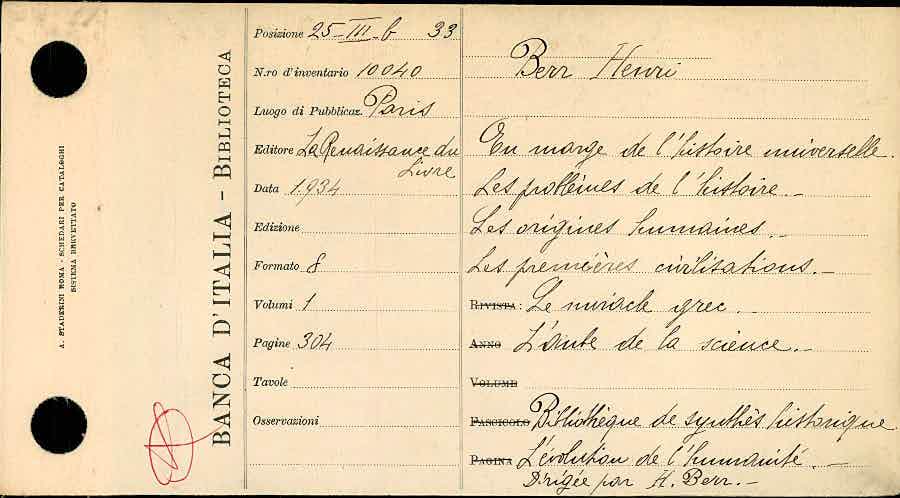 A. STADERINI ROMA - SCHEDARI PER CATALOGHI
SISTEMA BREVETTATO
BANCA D'ITALIA - BIBLIOTECA
Posizione 25-III-b 33
N.ro d'inventario 10040
Luogo di Pubblicaz. Paris
Editore La Renaissance du
Livre
Data 1934
Edizione
Formato 8
Volumi 1
Pagine 304
Tavole
Osservazioni
Berr Henri
En marge de l'histoire universelle.
Les problèmes de l'histoire.-
Les origines humaines.-
Les premières civilisations.-
RIVISTA: Le miracle grec.-
ANNO L'aube de la science.-
VOLUME
FASCICOLO Bibliothèque de synthès. historique
PAGINA L'évolution de l'humanité.-
Dirigée par H. Berr.-